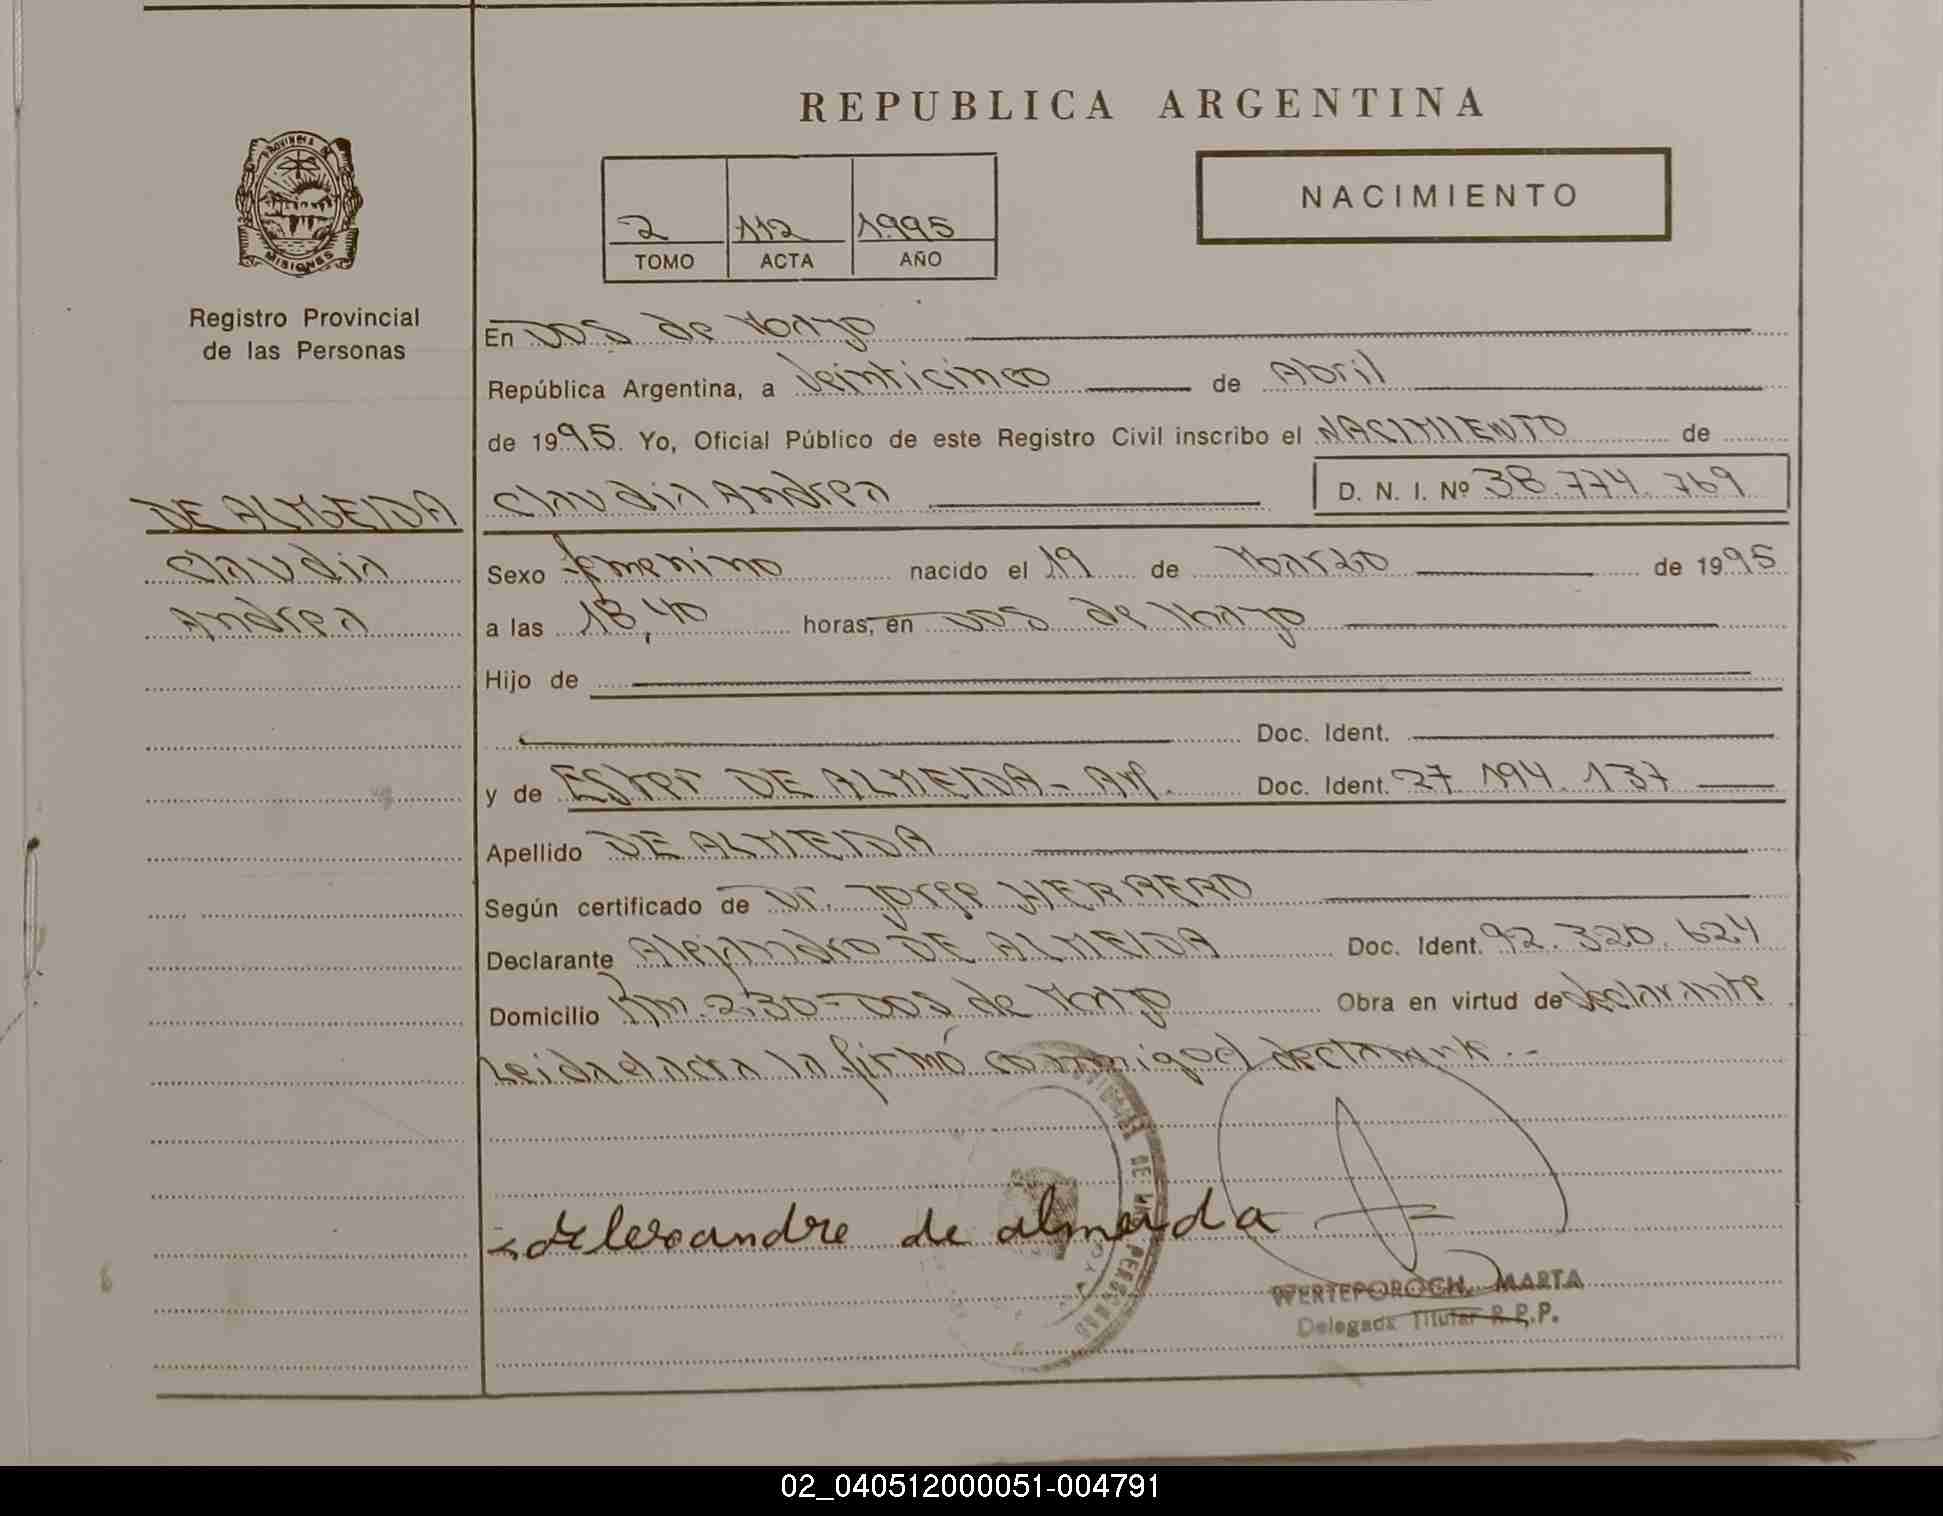 REPUBLICA ARGENTINA
PROVINCIA DE
MISIONES
Registro Provincial
de las Personas
2 112 1995
TOMO ACTA AÑO
NACIMIENTO
En Dos de Mayo
República Argentina, a veinticinco de Abril
de 1995. Yo, Oficial Público de este Registro Civil inscribo el NACIMIENTO de
DE ALMEIDA
Claudia
Andrea
Claudia Andrea D. N. I. Nº 38.774.769
Sexo femenino nacido el 19 de Marzo de 1995
a las 18,40 horas, en Dos de Mayo
Hijo de
Doc. Ident.
y de Ester DE ALMEIDA- Ar. Doc. Ident. 27.194.137
Apellido DE ALMEIDA
Según certificado de Dr. Jorge HERRERO
Declarante Alejandro DE ALMEIDA Doc. Ident. 92.320.624
Domicilio Km. 230-Dos de Mayo Obra en virtud de declarante
Leida el acta la firmó conmigo el declarante.-
Alexandre de almeida
DE LAS PERSONAS
WERTEPOROCH, MARTA
Delegada Titular R.P.P.
02_040512000051-004791